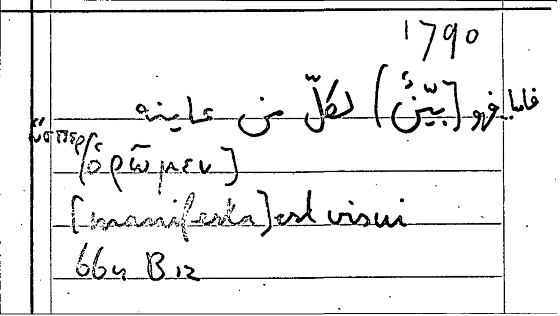 1790
فاما فهو [بيّنٌ] لكلّ من عاينه
ὥσπερ
[ὁρῶμεν]
[manifesta] est visui
66u B12